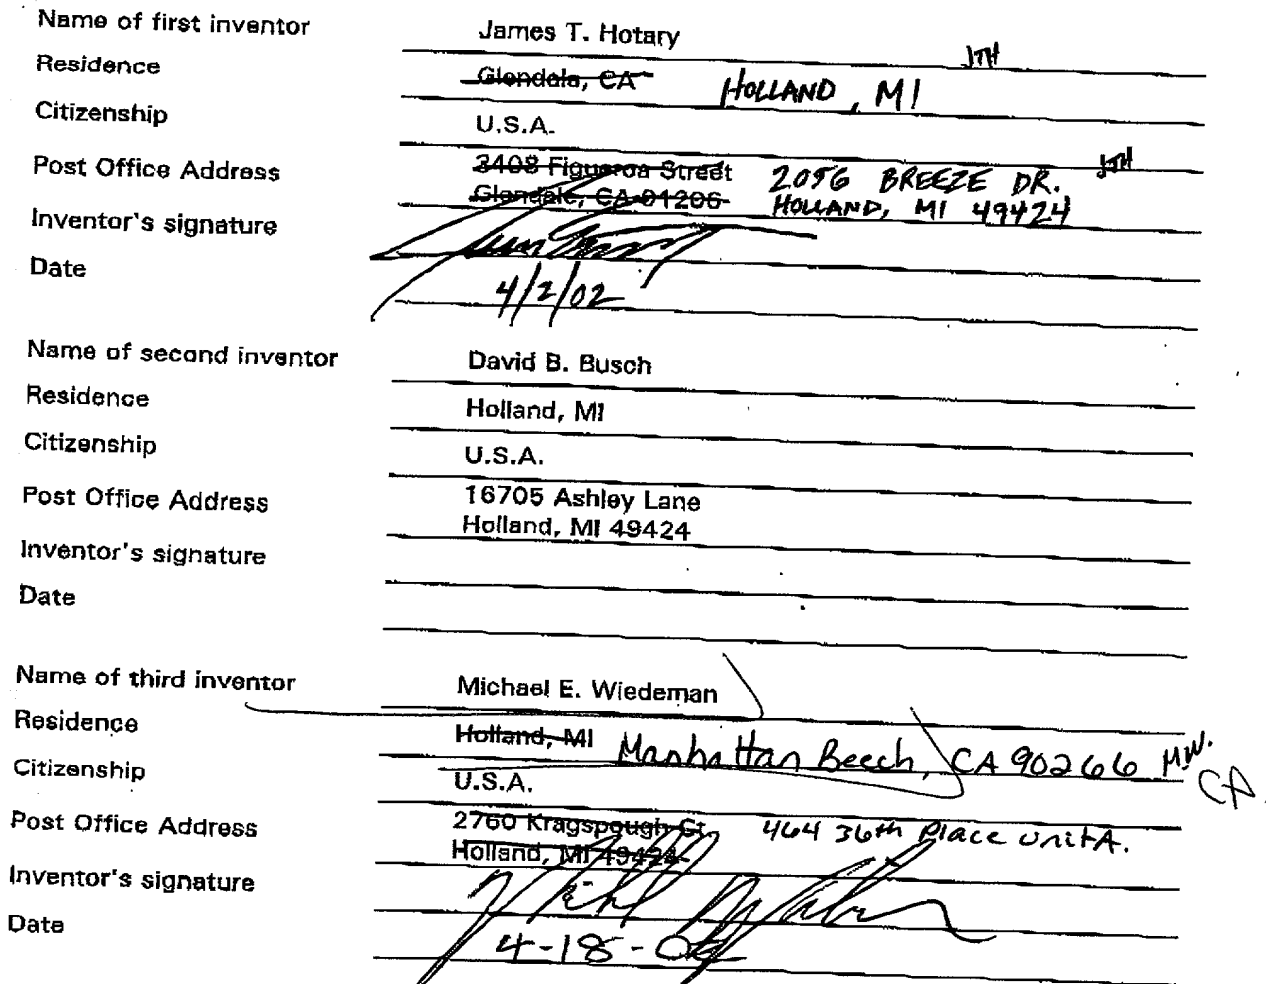 Name of first inventor James T. Hotary
JTH
Residence Glendale, CA HOLLAND, MI
Citizenship U.S.A.
Post Office Address 3408 Figueroa Street 2056 BREEZE DR. JTH
Glendale, CA 91206 HOLLAND, MI 49424
Inventor's signature
Date 4/2/02
Name of second inventor David B. Busch
Residence Holland, MI
Citizenship U.S.A.
Post Office Address 16705 Ashley Lane
Holland, MI 49424
Inventor's signature
Date
Name of third inventor Michael E. Wiedeman
Residence Holland, MI Manhattan Beech, CA 90266 M.W.
CA
Citizenship U.S.A.
Post Office Address 2760 Kragspough Ct. 464 36th Place unit A.
Holland, MI 49424
Inventor's signature
Date 4-18-02